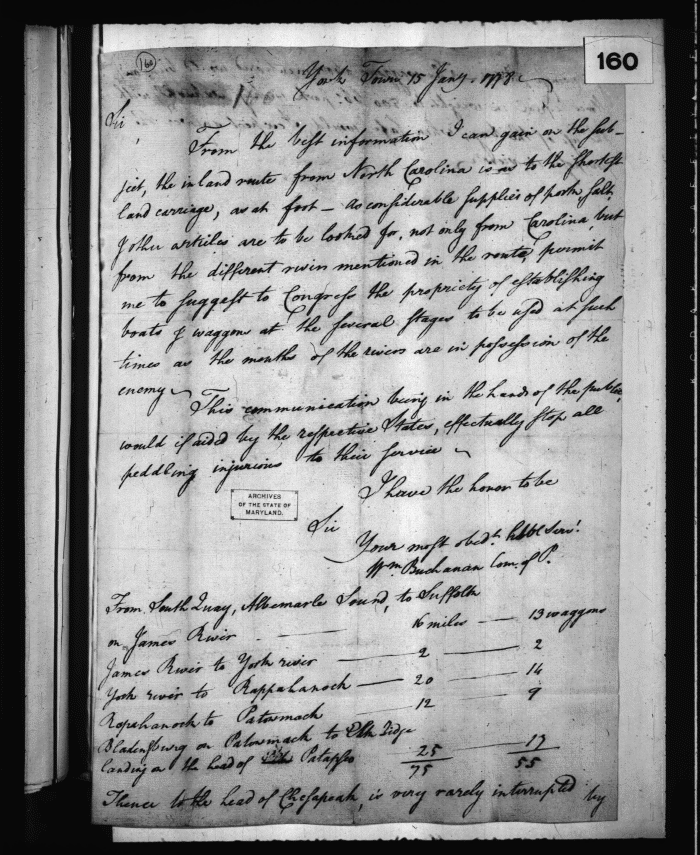 160
160
York Town 15 Jany. 1778
Sir,
From the best information I can gain on the sub-
ject, the inland route from North Carolina is as to the shortest
land carriage, as at foot — As considerable supplies of pork salt
& other articles are to be looked for, not only from Carolina, but
from the different rivers mentioned in the route, permit
me to suggest to Congress the propriety of establishing
boats & waggons at the several stages to be used at such
times as the mouths of the rivers are in possession of the
enemy —
This communication being in the hands of the public,
would if aided by the respective States, effectually stop all
peddling injurious to their service —
I have the honor to be
ARCHIVES
OF THE STATE OF
MARYLAND.
Sir
Your most obedt. hbble Servt.
Wm. Buchanan Com. of P.
From South Quay, Albemarle Sound, to Suffolk
on James River — 16 miles — 13 waggons
James River to York river — 2 — 2
York river to Rappahanock — 20 — 14
Rapahanock to Patowmack — 12 — 9
Bladensburg on Patowmack to Elk Ridge
landing on the head of Patapsco 25 — 17
75 55
Thence to the head of Chesapeak, is very rarely interrupted by